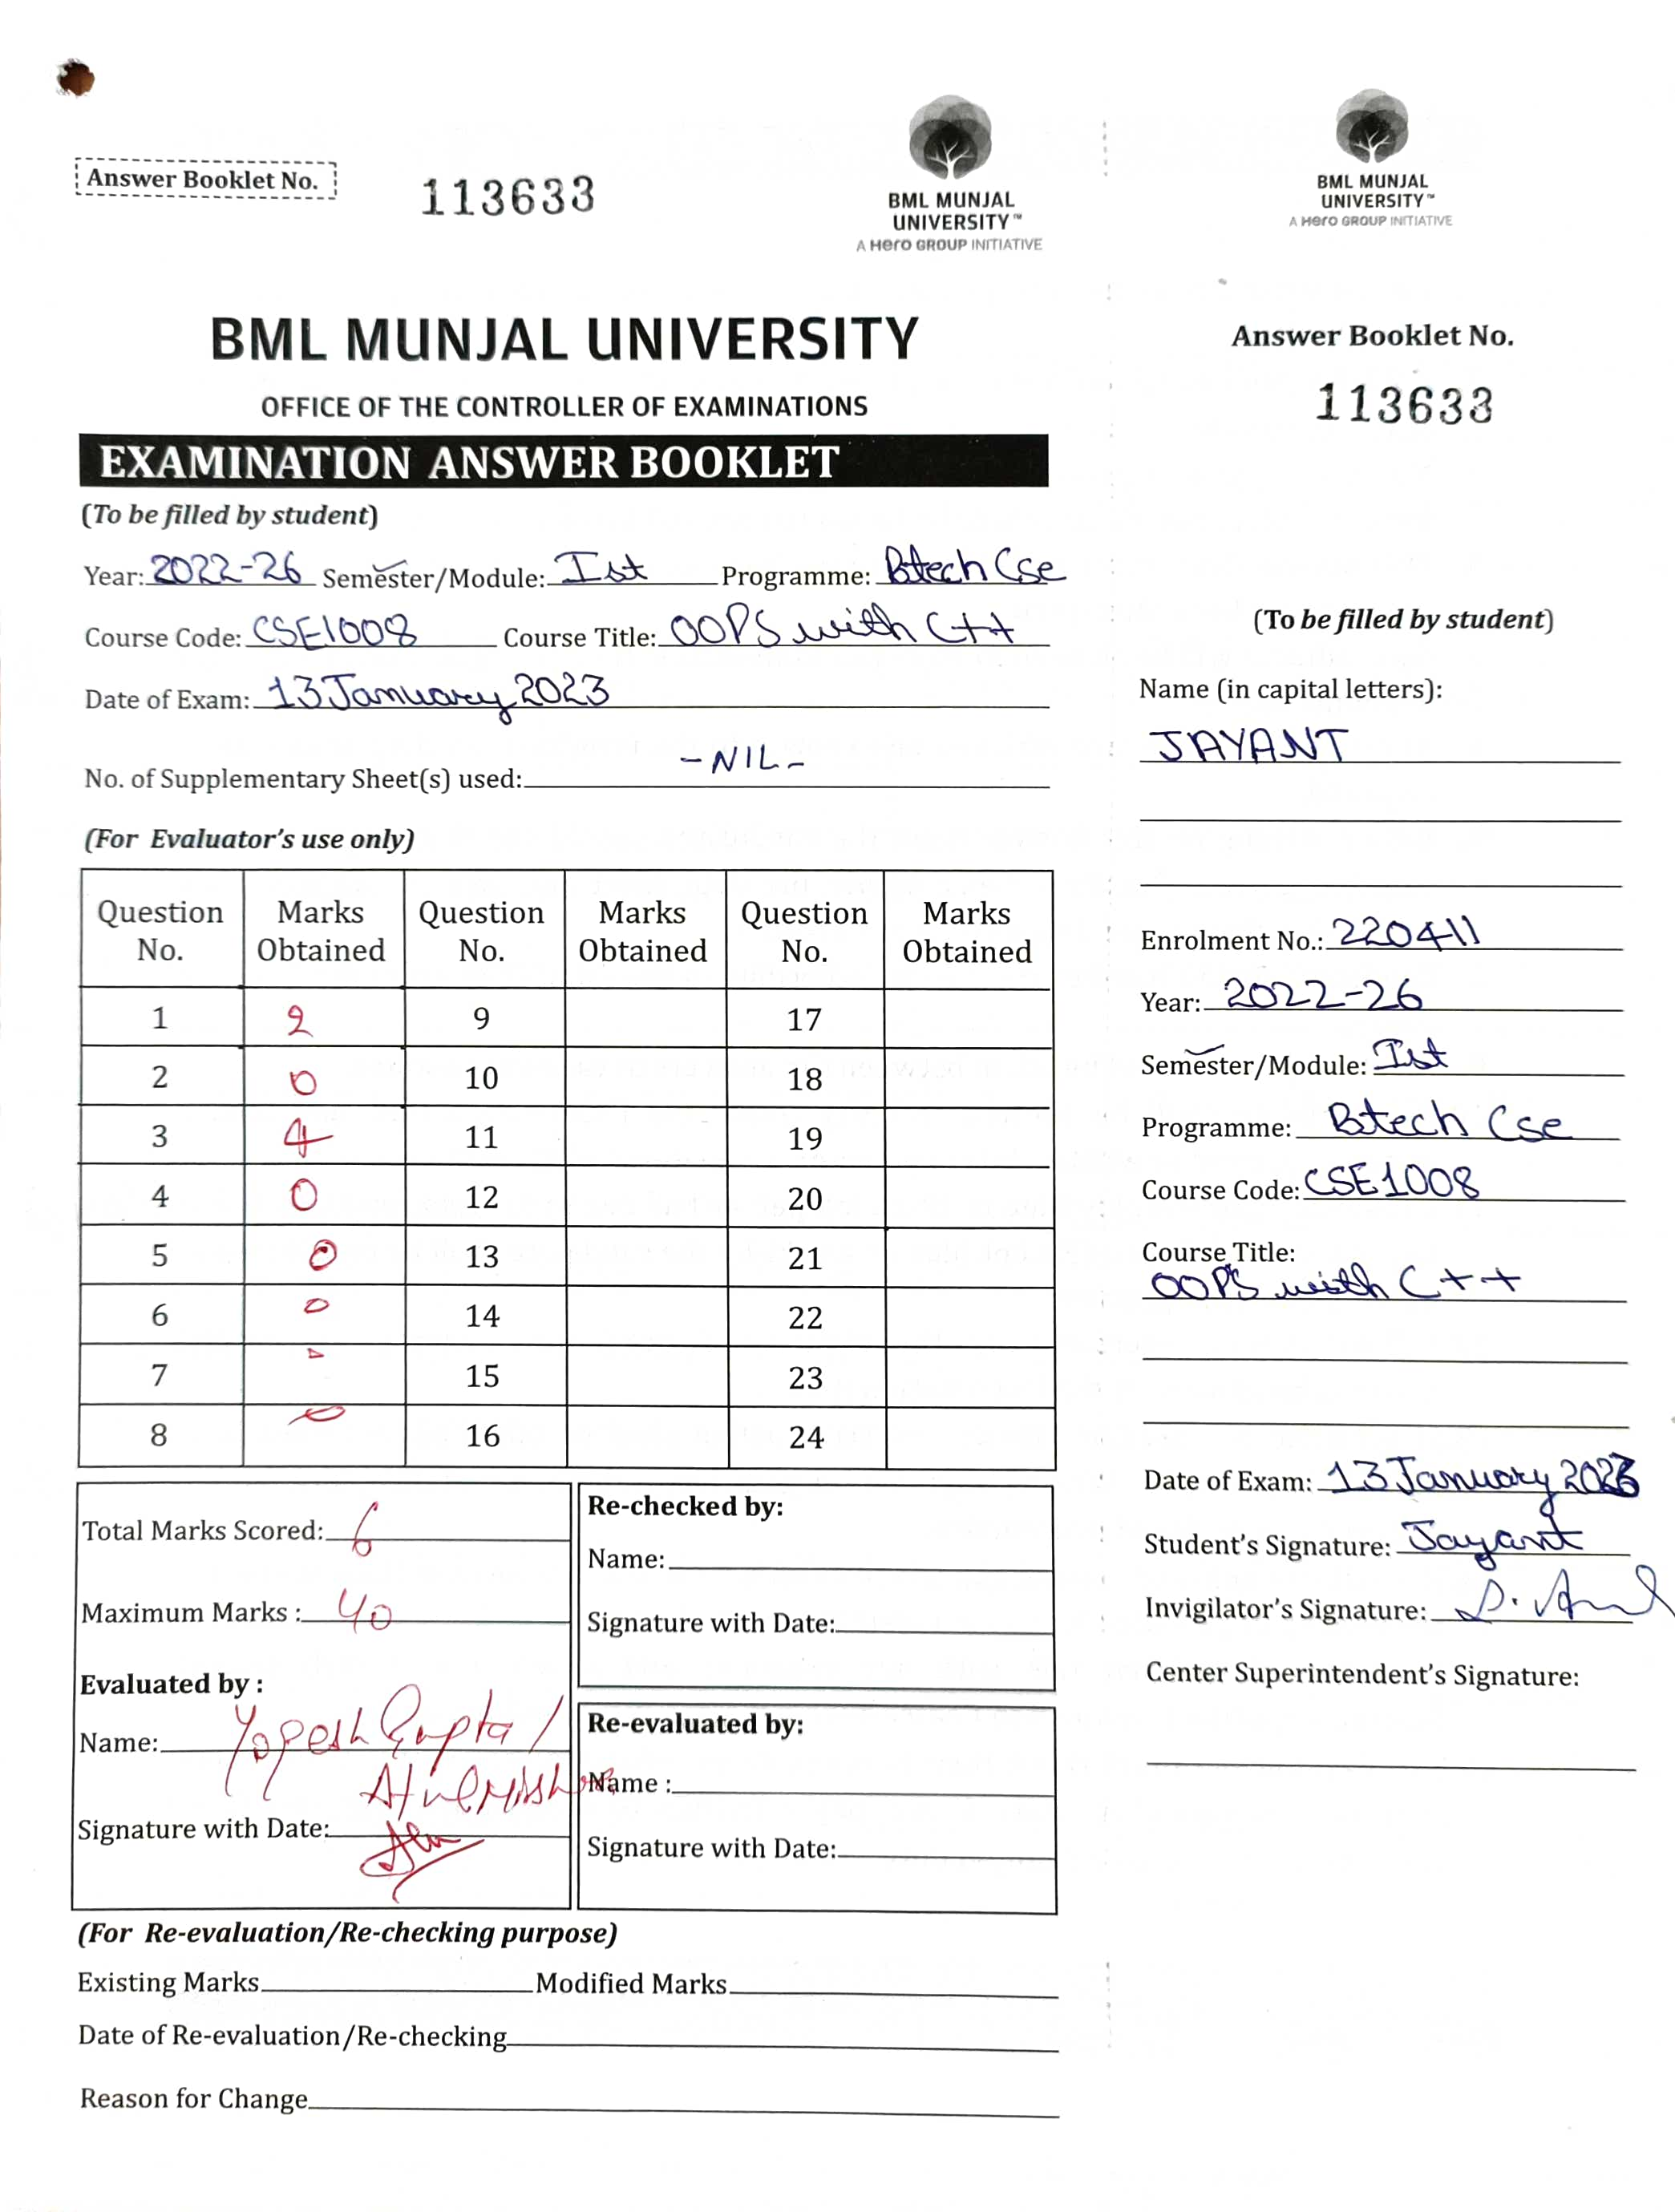 Answer Booklet No.
113633
BML MUNJAL
UNIVERSITY™
A Hero GROUP INITIATIVE
BML MUNJAL UNIVERSITY
OFFICE OF THE CONTROLLER OF EXAMINATIONS
EXAMINATION ANSWER BOOKLET
(To be filled by student)
Year: 2022-26 Semester/Module: Ist Programme: Btech Cse
Course Code: CSE1008 Course Title: OOPS with C++
Date of Exam: 13 January 2023
No. of Supplementary Sheet(s) used: -NIL-
(For Evaluator's use only)
Question No. Marks Obtained Question No. Marks Obtained Question No. Marks Obtained
1 2 9 17
2 0 10 18
3 4 11 19
4 0 12 20
5 0 13 21
6 0 14 22
7 15 23
8 0 16 24
Total Marks Scored: 6
Maximum Marks : 40
Evaluated by :
Name: Yogesh Gupta /
Atul Mishra
Signature with Date:
Re-checked by:
Name:
Signature with Date:
Re-evaluated by:
Name :
Signature with Date:
(For Re-evaluation/Re-checking purpose)
Existing Marks Modified Marks
Date of Re-evaluation/Re-checking
Reason for Change
BML MUNJAL
UNIVERSITY™
A Hero GROUP INITIATIVE
Answer Booklet No.
113633
(To be filled by student)
Name (in capital letters):
JAYANT
Enrolment No.: 220411
Year: 2022-26
Semester/Module: Ist
Programme: Btech Cse
Course Code: CSE1008
Course Title:
OOPS with C++
Date of Exam: 13 January 2023
Student's Signature: Jayant
Invigilator's Signature:
Center Superintendent's Signature: